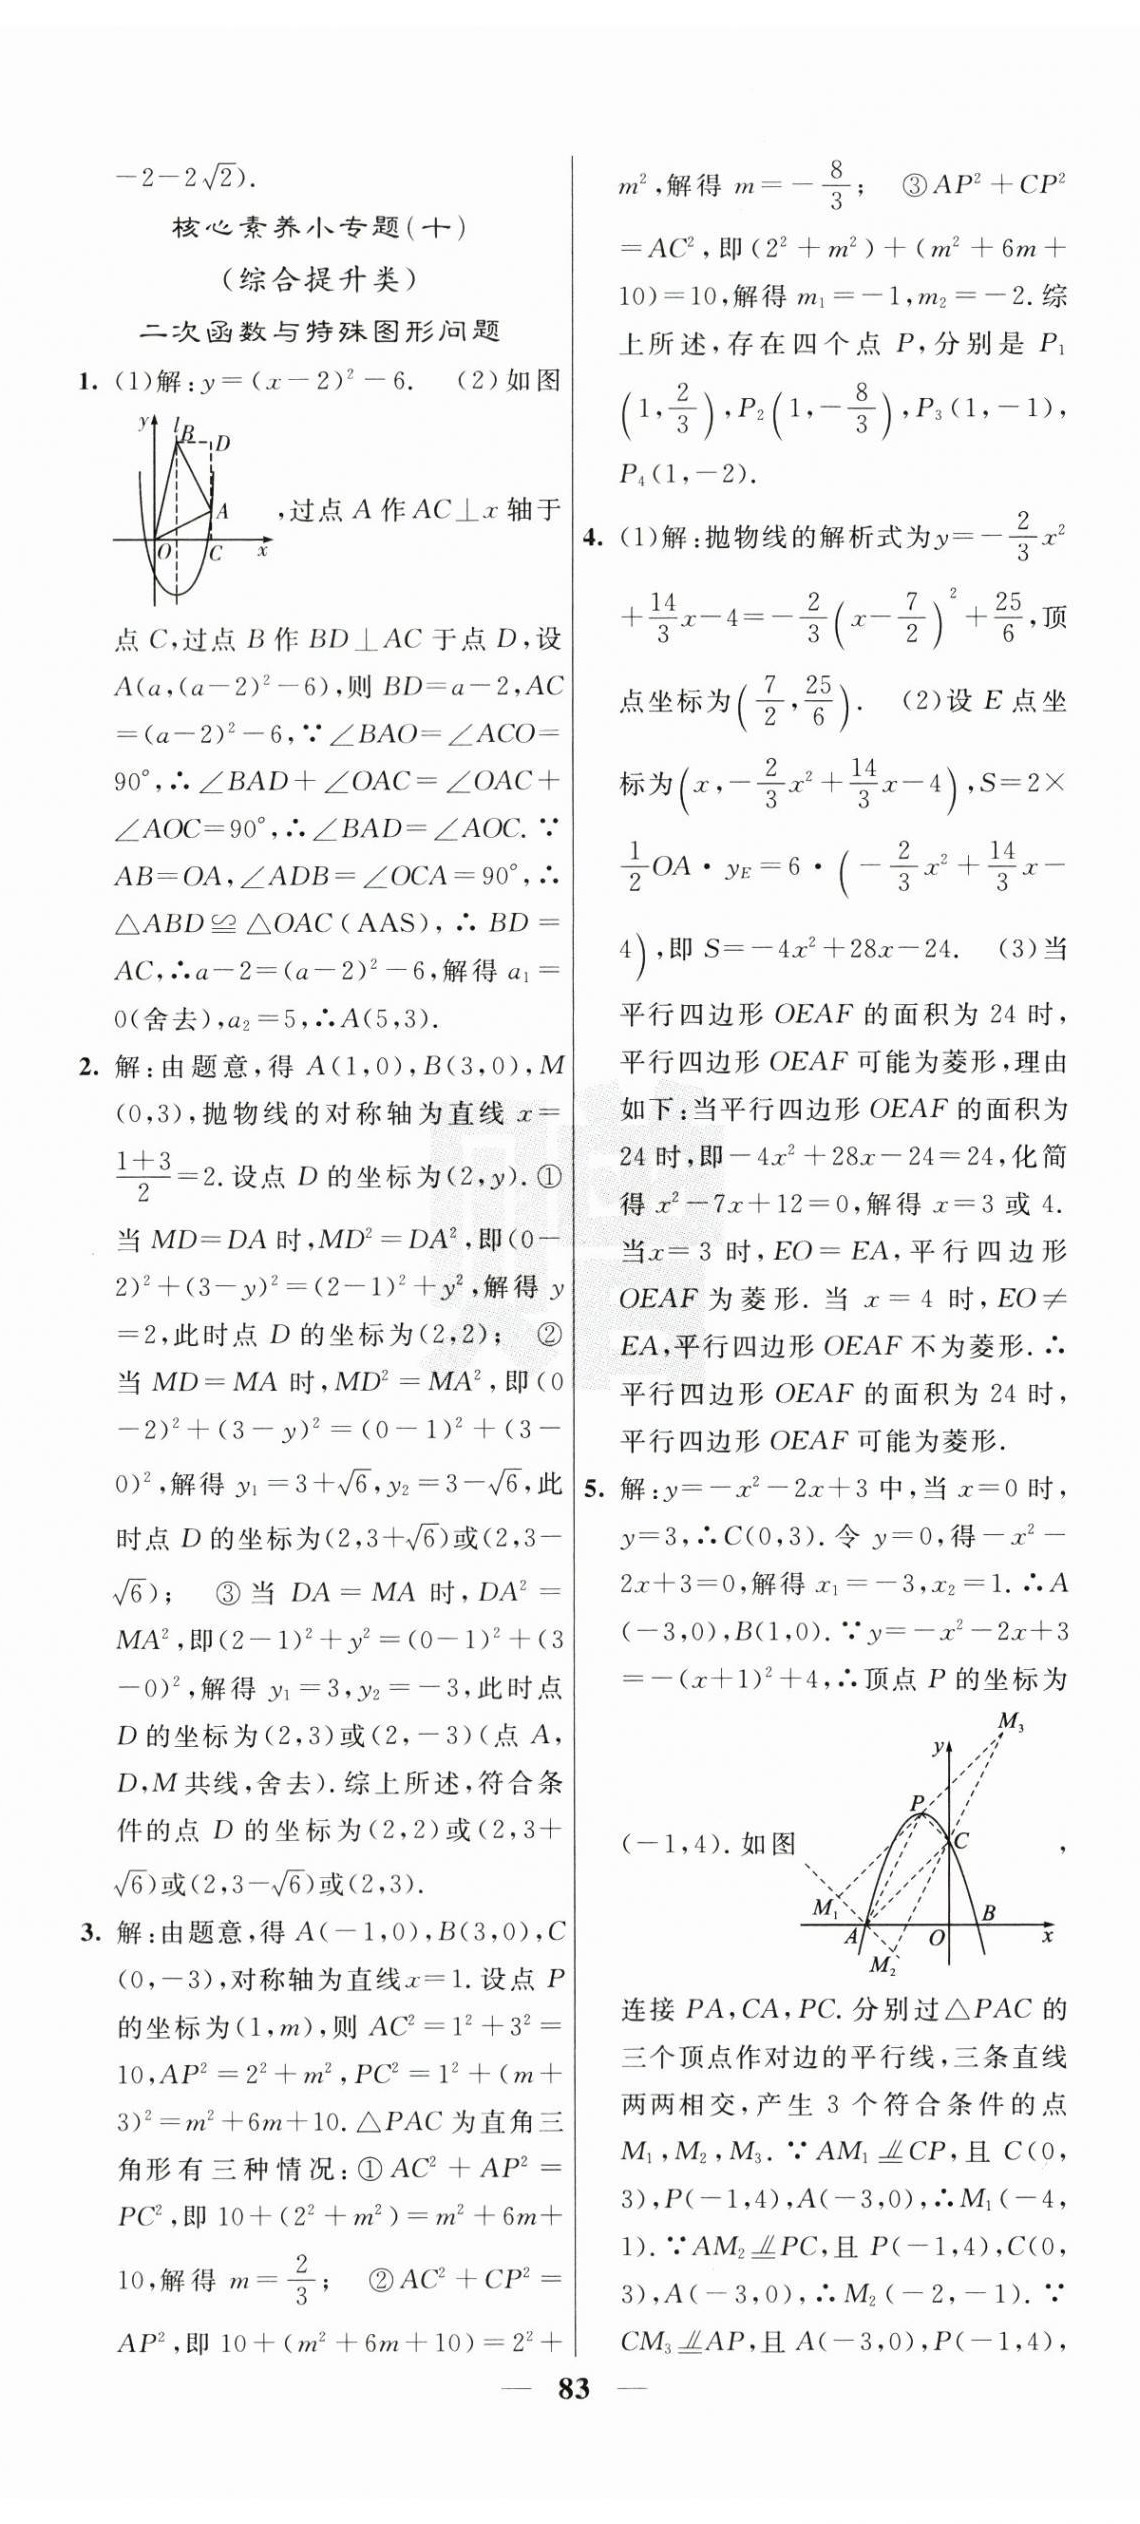 -2-2√2).
核心素养小专题(十)
(综合提升类)
二次函数与特殊图形问题
1. (1)解:y=(x-2)²-6. (2)如图
y l B D A O C x
,过点 A 作 AC⊥x 轴于
点 C,过点 B 作 BD⊥AC 于点 D,设
A(a,(a-2)²-6),则 BD=a-2,AC
=(a-2)²-6,∵∠BAO=∠ACO=
90°,∴∠BAD+∠OAC=∠OAC+
∠AOC=90°,∴∠BAD=∠AOC.∵
AB=OA,∠ADB=∠OCA=90°,∴
△ABD≌△OAC(AAS),∴BD=
AC,∴a-2=(a-2)²-6,解得 a₁=
0(舍去),a₂=5,∴A(5,3).
2. 解:由题意,得 A(1,0),B(3,0),M
(0,3),抛物线的对称轴为直线 x=
(1+3)/2=2.设点 D 的坐标为(2,y).①
当 MD=DA 时,MD²=DA²,即(0-
2)²+(3-y)²=(2-1)²+y²,解得 y
=2,此时点 D 的坐标为(2,2); ②
当 MD=MA 时,MD²=MA²,即(0
-2)²+(3-y)²=(0-1)²+(3-
0)²,解得 y₁=3+√6,y₂=3-√6,此
时点 D 的坐标为(2,3+√6)或(2,3-
√6); ③当 DA=MA 时,DA²=
MA²,即(2-1)²+y²=(0-1)²+(3
-0)²,解得 y₁=3,y₂=-3,此时点
D 的坐标为(2,3)或(2,-3)(点 A,
D,M 共线,舍去).综上所述,符合条
件的点 D 的坐标为(2,2)或(2,3+
√6)或(2,3-√6)或(2,3).
3. 解:由题意,得 A(-1,0),B(3,0),C
(0,-3),对称轴为直线x=1.设点 P
的坐标为(1,m),则 AC²=1²+3²=
10,AP²=2²+m²,PC²=1²+(m+
3)²=m²+6m+10.△PAC 为直角三
角形有三种情况:①AC²+AP²=
PC²,即 10+(2²+m²)=m²+6m+
10,解得 m=2/3; ②AC²+CP²=
AP²,即 10+(m²+6m+10)=2²+
m²,解得 m=-8/3; ③AP²+CP²
=AC²,即(2²+m²)+(m²+6m+
10)=10,解得 m₁=-1,m₂=-2.综
上所述,存在四个点 P,分别是 P₁
(1,2/3),P₂(1,-8/3),P₃(1,-1),
P₄(1,-2).
4. (1)解:抛物线的解析式为y=-2/3x²
+14/3x-4=-2/3(x-7/2)²+25/6,顶
点坐标为(7/2,25/6). (2)设 E 点坐
标为(x,-2/3x²+14/3x-4),S=2×
1/2OA·y_E=6·(-2/3x²+14/3x-
4),即 S=-4x²+28x-24. (3)当
平行四边形 OEAF 的面积为 24 时,
平行四边形 OEAF 可能为菱形,理由
如下:当平行四边形 OEAF 的面积为
24 时,即-4x²+28x-24=24,化简
得 x²-7x+12=0,解得 x=3 或 4.
当x=3 时,EO=EA,平行四边形
OEAF 为菱形.当 x=4 时,EO≠
EA,平行四边形 OEAF 不为菱形.∴
平行四边形 OEAF 的面积为 24 时,
平行四边形 OEAF 可能为菱形.
5. 解:y=-x²-2x+3 中,当 x=0 时,
y=3,∴C(0,3).令 y=0,得-x²-
2x+3=0,解得 x₁=-3,x₂=1.∴A
(-3,0),B(1,0).∵y=-x²-2x+3
=-(x+1)²+4,∴顶点 P 的坐标为
(-1,4).如图
y M₃ P C M₁ A M₂ O B x
,
连接 PA,CA,PC.分别过△PAC 的
三个顶点作对边的平行线,三条直线
两两相交,产生 3 个符合条件的点
M₁,M₂,M₃.∵AM₁⫽CP,且 C(0,
3),P(-1,4),A(-3,0),∴M₁(-4,
1).∵AM₂⫽PC,且 P(-1,4),C(0,
3),A(-3,0),∴M₂(-2,-1).∵
CM₃⫽AP,且 A(-3,0),P(-1,4),
— 83 —